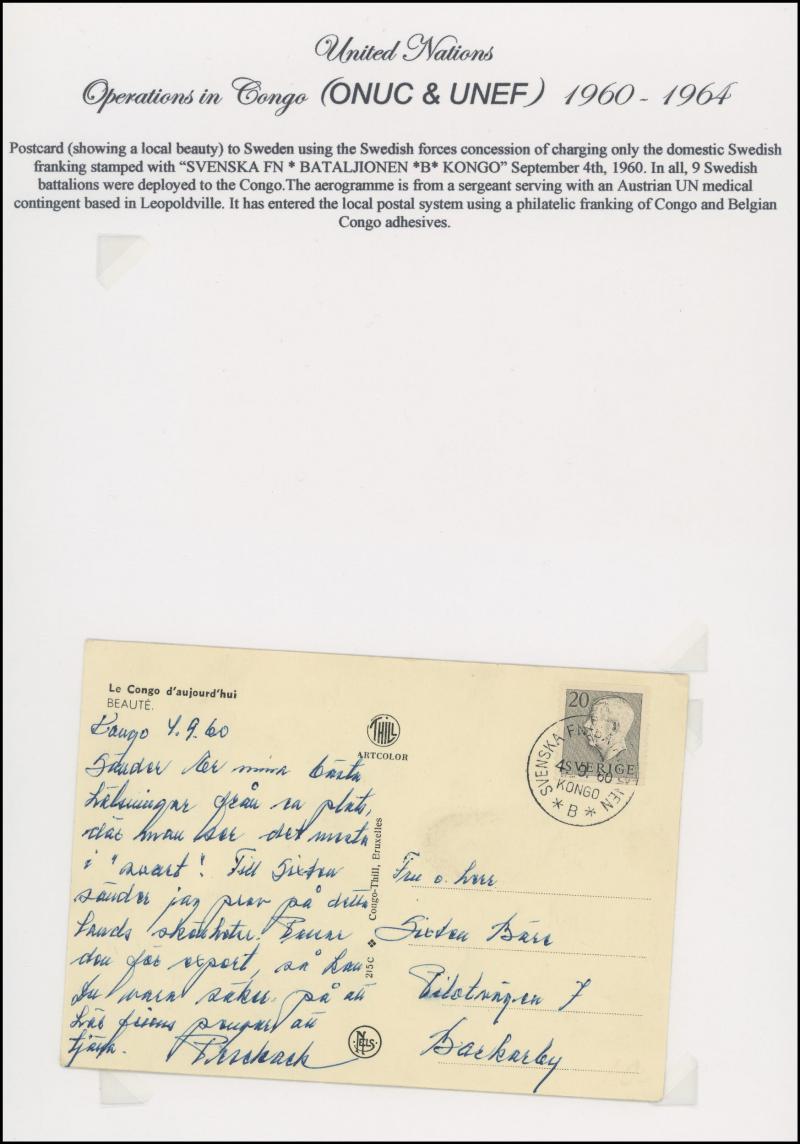 United Nations
Operations in Congo (ONUC & UNEF) 1960 - 1964
Postcard (showing a local beauty) to Sweden using the Swedish forces concession of charging only the domestic Swedish
franking stamped with “SVENSKA FN * BATALJIONEN *B* KONGO” September 4th, 1960. In all, 9 Swedish
battalions were deployed to the Congo.The aerogramme is from a sergeant serving with an Austrian UN medical
contingent based in Leopoldville. It has entered the local postal system using a philatelic franking of Congo and Belgian
Congo adhesives.
Le Congo d'aujourd'hui
BEAUTÉ.
Kongo 4.9.60
Sänder Er mina bästa
hälsningar från en plats,
där man ser det mesta
i "svart". Till Sixten
sänder jag prov på detta
lands skönheter. Finnes
den för export, så kan
Du vara säker på att
här finns pengar att
tjäna.
THILL
ARTCOLOR
Congo-Thill, Bruxelles
2/5 C
NELS
20
SVERIGE
SVENSKA FN BA JEN
4.9.60
KONGO
* B *
Fru o. herr
Sixten Bäre
Pilotvägen 7
Barkarby